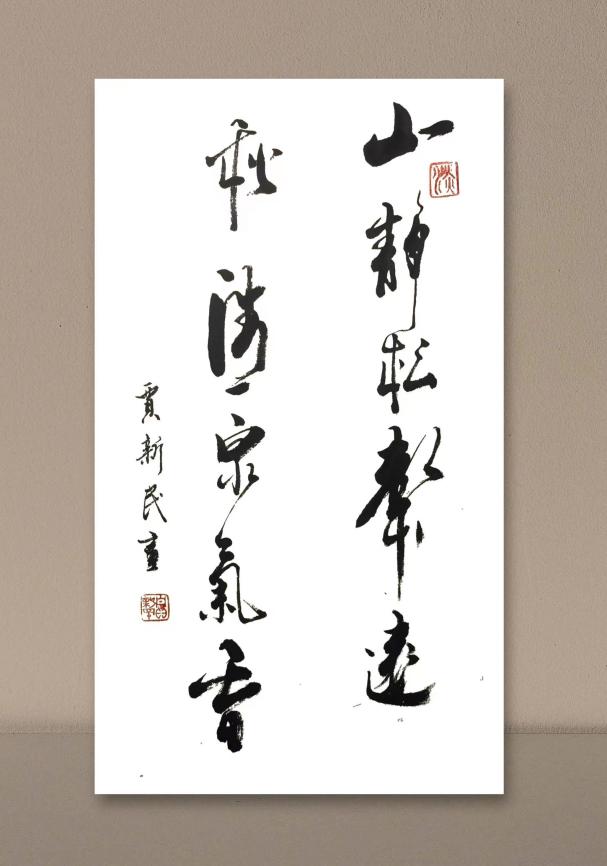 山静松聲遠
秋清泉氣香
賈新民書